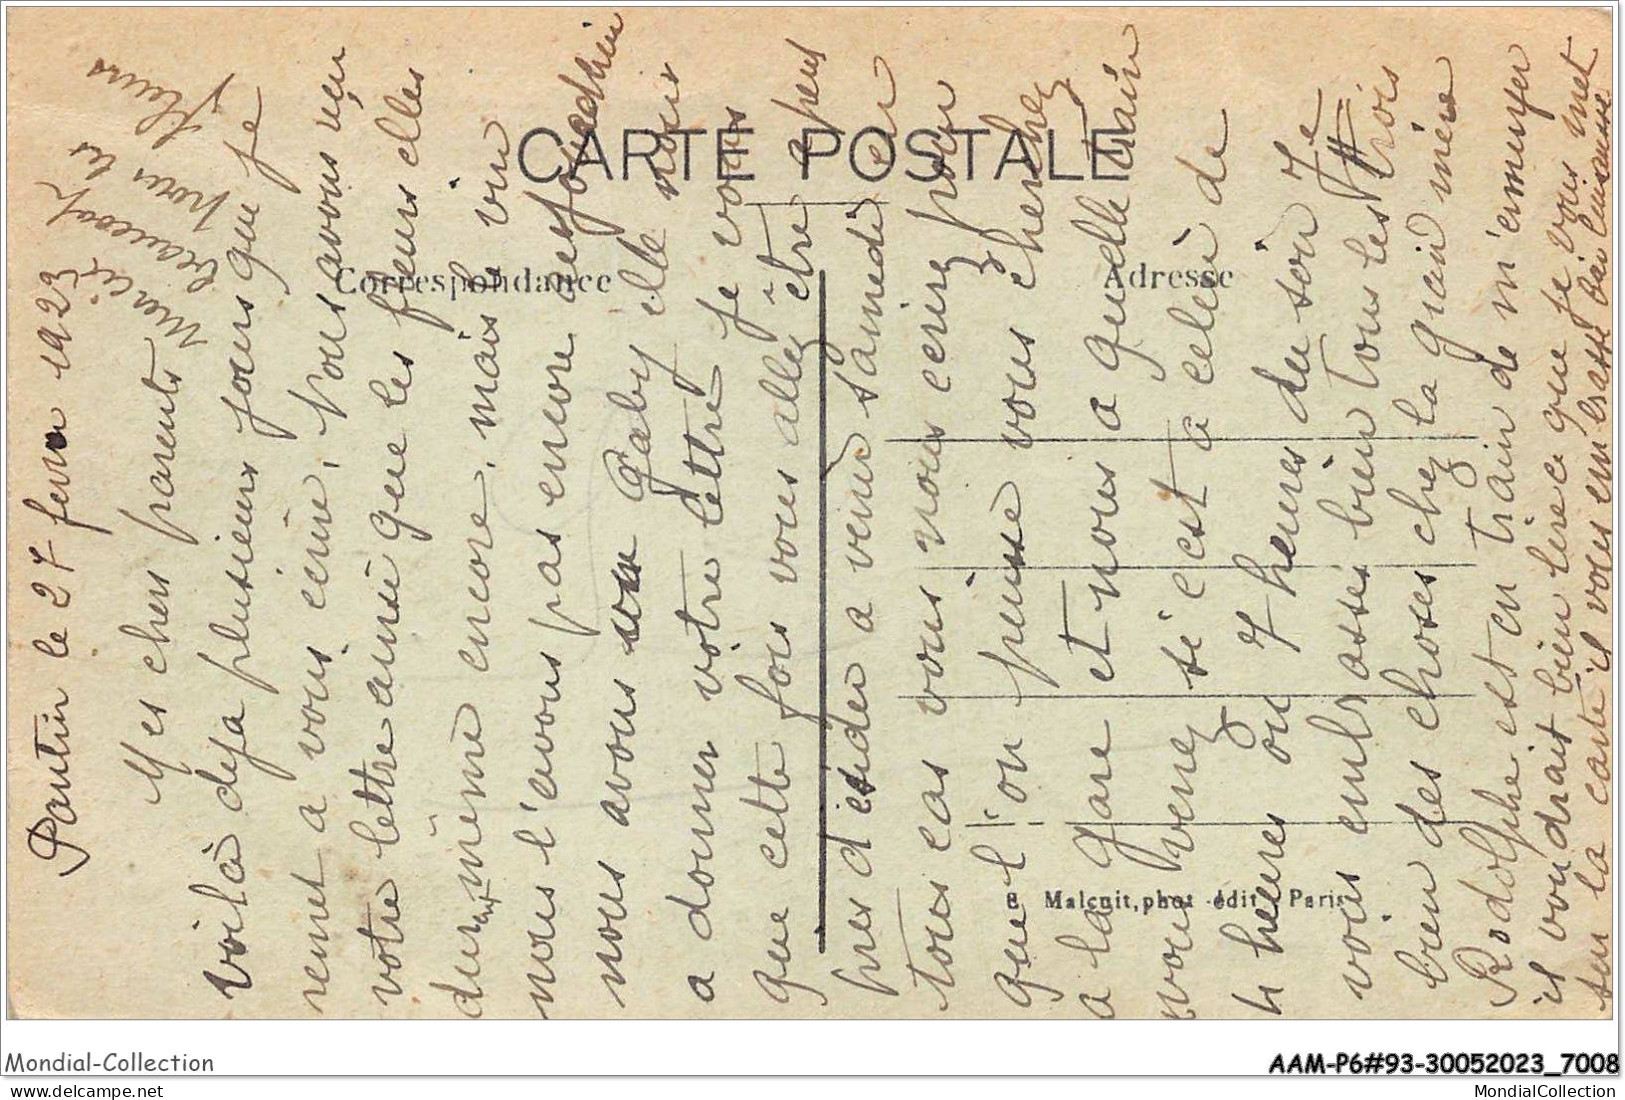 Pantin le 27 fevr 1923
Mes chers parents
voilà deja plusieurs jours que je
remet a vous écrire, Nous avons reçu
votre lettre ainsi que les fleurs elles
dur même encore, mais le vin
nous l'avons pas encore aujourdhui
nous avons vu Gaby elle nous
a donner votre lettre je vois
que cette fois vous allez être a peus
pres d esider a venir samedi en
tous cas vous nous ecrirez pour
que l'on puisse vous cherchez
a la gare et nous a quelle train
vous venez si c'est a celui de
4 heures ou 7 heures du soir Je
vous embrasse bien tous les trois
bien des choses chez la grand mère
Rodolphe est en train de m'ennuyer
il voudrait bien lire ce que je vous met
sur la carte il vous embrasse bien
Merci
beaucoup
pour les
fleurs
CARTE POSTALE
Correspondance
Adresse
E Malcuit, phot-édit Paris
Mondial-Collection
AAM-P6#93-30052023_7008
MondialCollection
MondialCollection